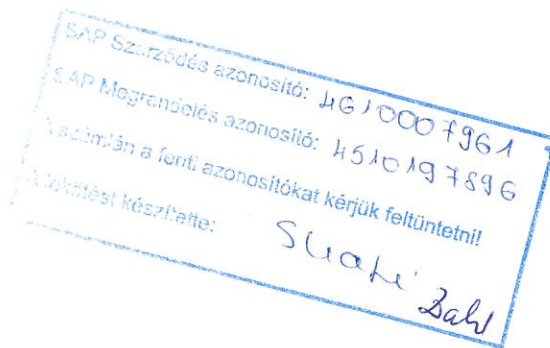 SAP Szerződés azonosító: 4610007961
SAP Megrendelés azonosító: 4510197896
A számlán a fenti azonosítókat kérjük feltüntetni!
A lekötést készítette: